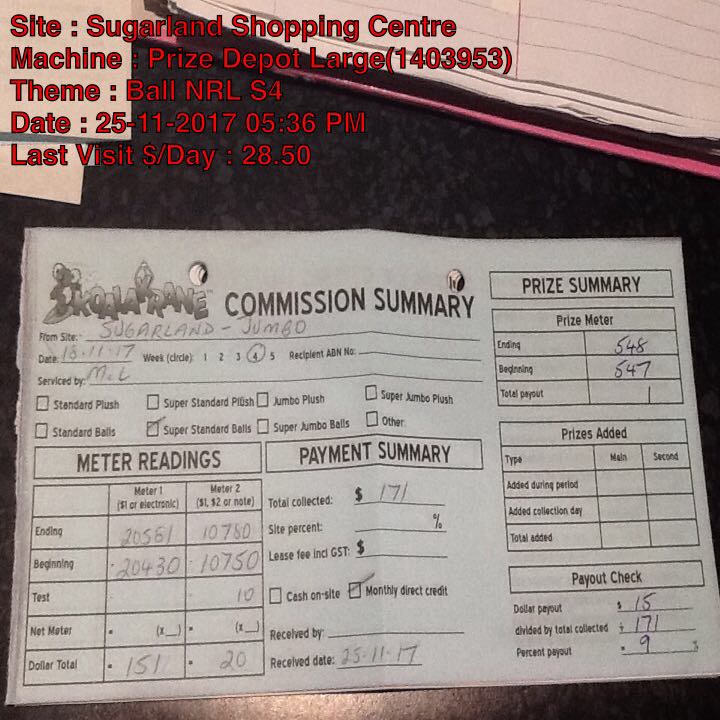 Site : Sugarland Shopping Centre
Machine : Prize Depot Large(1403953)
Theme : Ball NRL S4
Date : 25-11-2017 05:36 PM
Last Visit $/Day : 28.50
KOALA KRANE
COMMISSION SUMMARY
From Site: SUGARLAND - JUMBO
Date: 18.11.17 Week (circle): 1 2 3 4 5 Recipient ABN No:
Serviced by: M.L
Standard Plush Super Standard Plush Jumbo Plush Super Jumbo Plush
Standard Balls Super Standard Balls Super Jumbo Balls Other
METER READINGS
Meter 1 Meter 2
($1 or electronic) ($1, $2 or note)
Ending 20581 10780
Beginning 20430 10750
Test 10
Net Meter = (x__) = (x__)
Dollar Total = 151 = 20
PAYMENT SUMMARY
Total collected: $ 171
Site percent: %
Lease fee incl GST: $
Cash on-site Monthly direct credit
Received by:
Received date: 25-11-17
PRIZE SUMMARY
Prize Meter
Ending 548
Beginning 547
Total payout 1
Prizes Added
Type Main Second
Added during period
Added collection day
Total added
Payout Check
Dollar payout $ 15
divided by total collected ÷ 171
Percent payout = 9 %